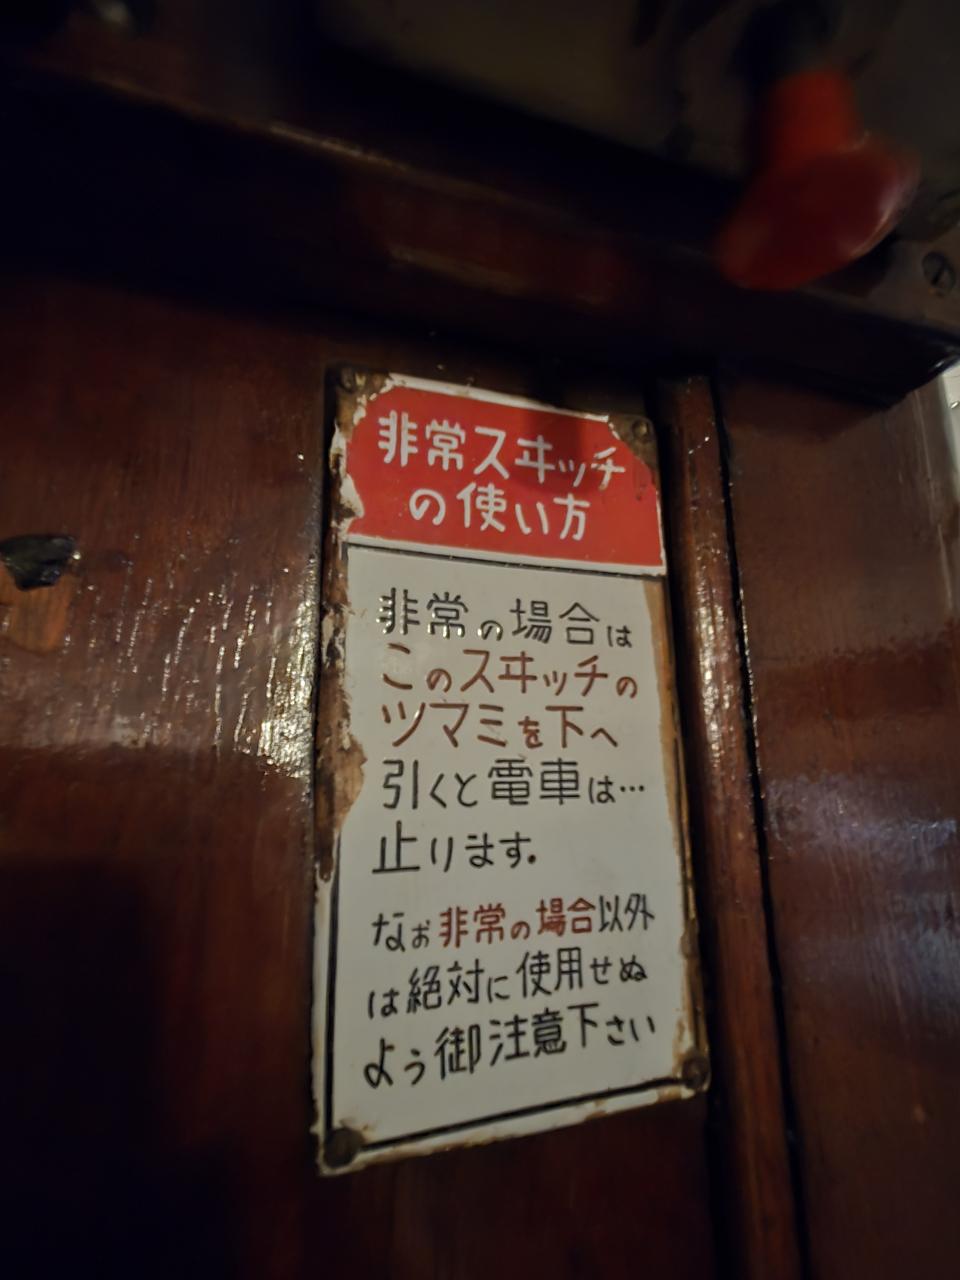 非常スヰッチ
の使い方
非常の場合は
このスヰッチの
ツマミを下へ
引くと電車は…
止ります.
なお非常の場合以外
は絶対に使用せぬ
よう御注意下さい